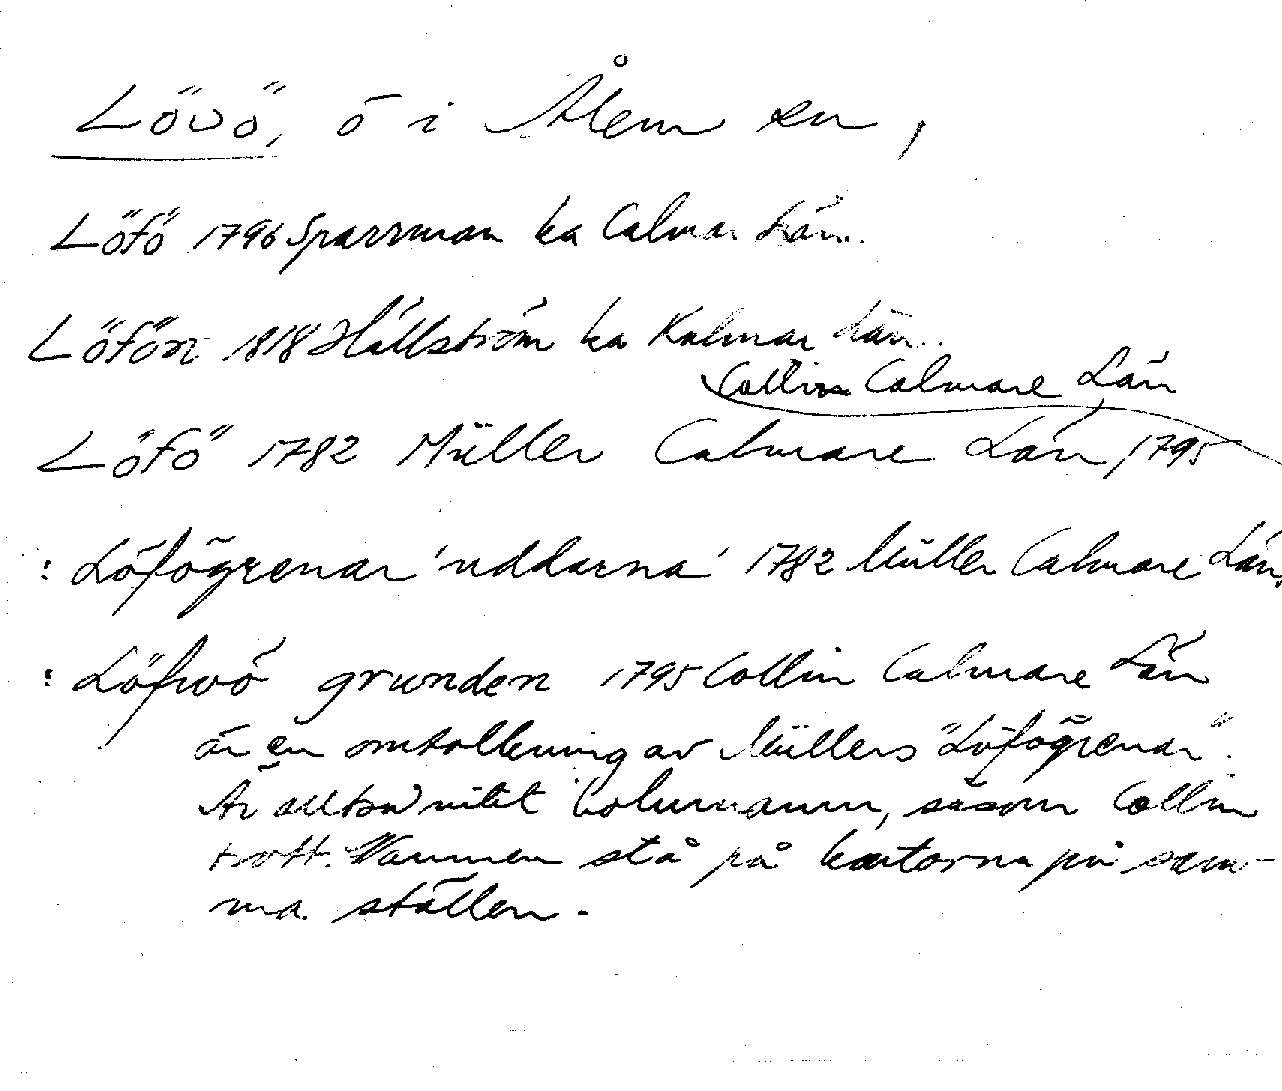 Lövö, ö i Ålem sn,
Löfö 1796 Sparrman ka Calmar Län.
Löfön 1818 Hällström ka Kalmar län.
Collin Calmare Län
Löfö 1782 Müller Calmare Län, 1795
: Löfögrenar 'uddarna' 1782 Müller Calmare Län.
: Löfwö grunden 1795 Collin Calmare Län
är en omtolkning av Müllers "Löfögrenar".
Är alltså intet holmnamn, såsom Collin
trott. Namnen stå på kartorna på sam-
ma ställen.